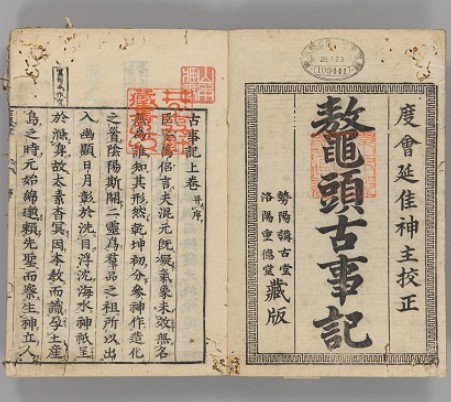 度會延佳神主校正
鼇頭古事記
勢陽講古堂
洛陽重德堂
藏版
古事記上卷 并序
臣安萬侶言夫混元既凝氣象未效無名
無爲誰知其形然乾坤初分參神作造化
之首陰陽斯開二靈爲羣品之祖所以出
入幽顯日月彰於洗目浮沈海水神祇呈
於滌身故太素杳冥因本教而識孕土産
島之時元始綿邈賴先聖而察生神立人